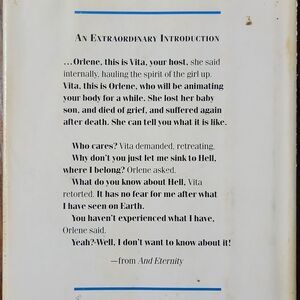 AN EXTRAORDINARY INTRODUCTION
...Orlene, this is Vita, your host, she said
internally, hauling the spirit of the girl up.
Vita, this is Orlene, who will be animating
your body for a while. She lost her baby
son, and died of grief, and suffered again
after death. She can tell you what it is like.
Who cares? Vita demanded, retreating.
Why don't you just let me sink to Hell,
where I belong? Orlene asked.
What do you know about Hell, Vita
retorted. It has no fear for me after what
I have seen on Earth.
You haven't experienced what I have,
Orlene said.
Yeah?-Well, I don't want to know about it!
—from And Eternity